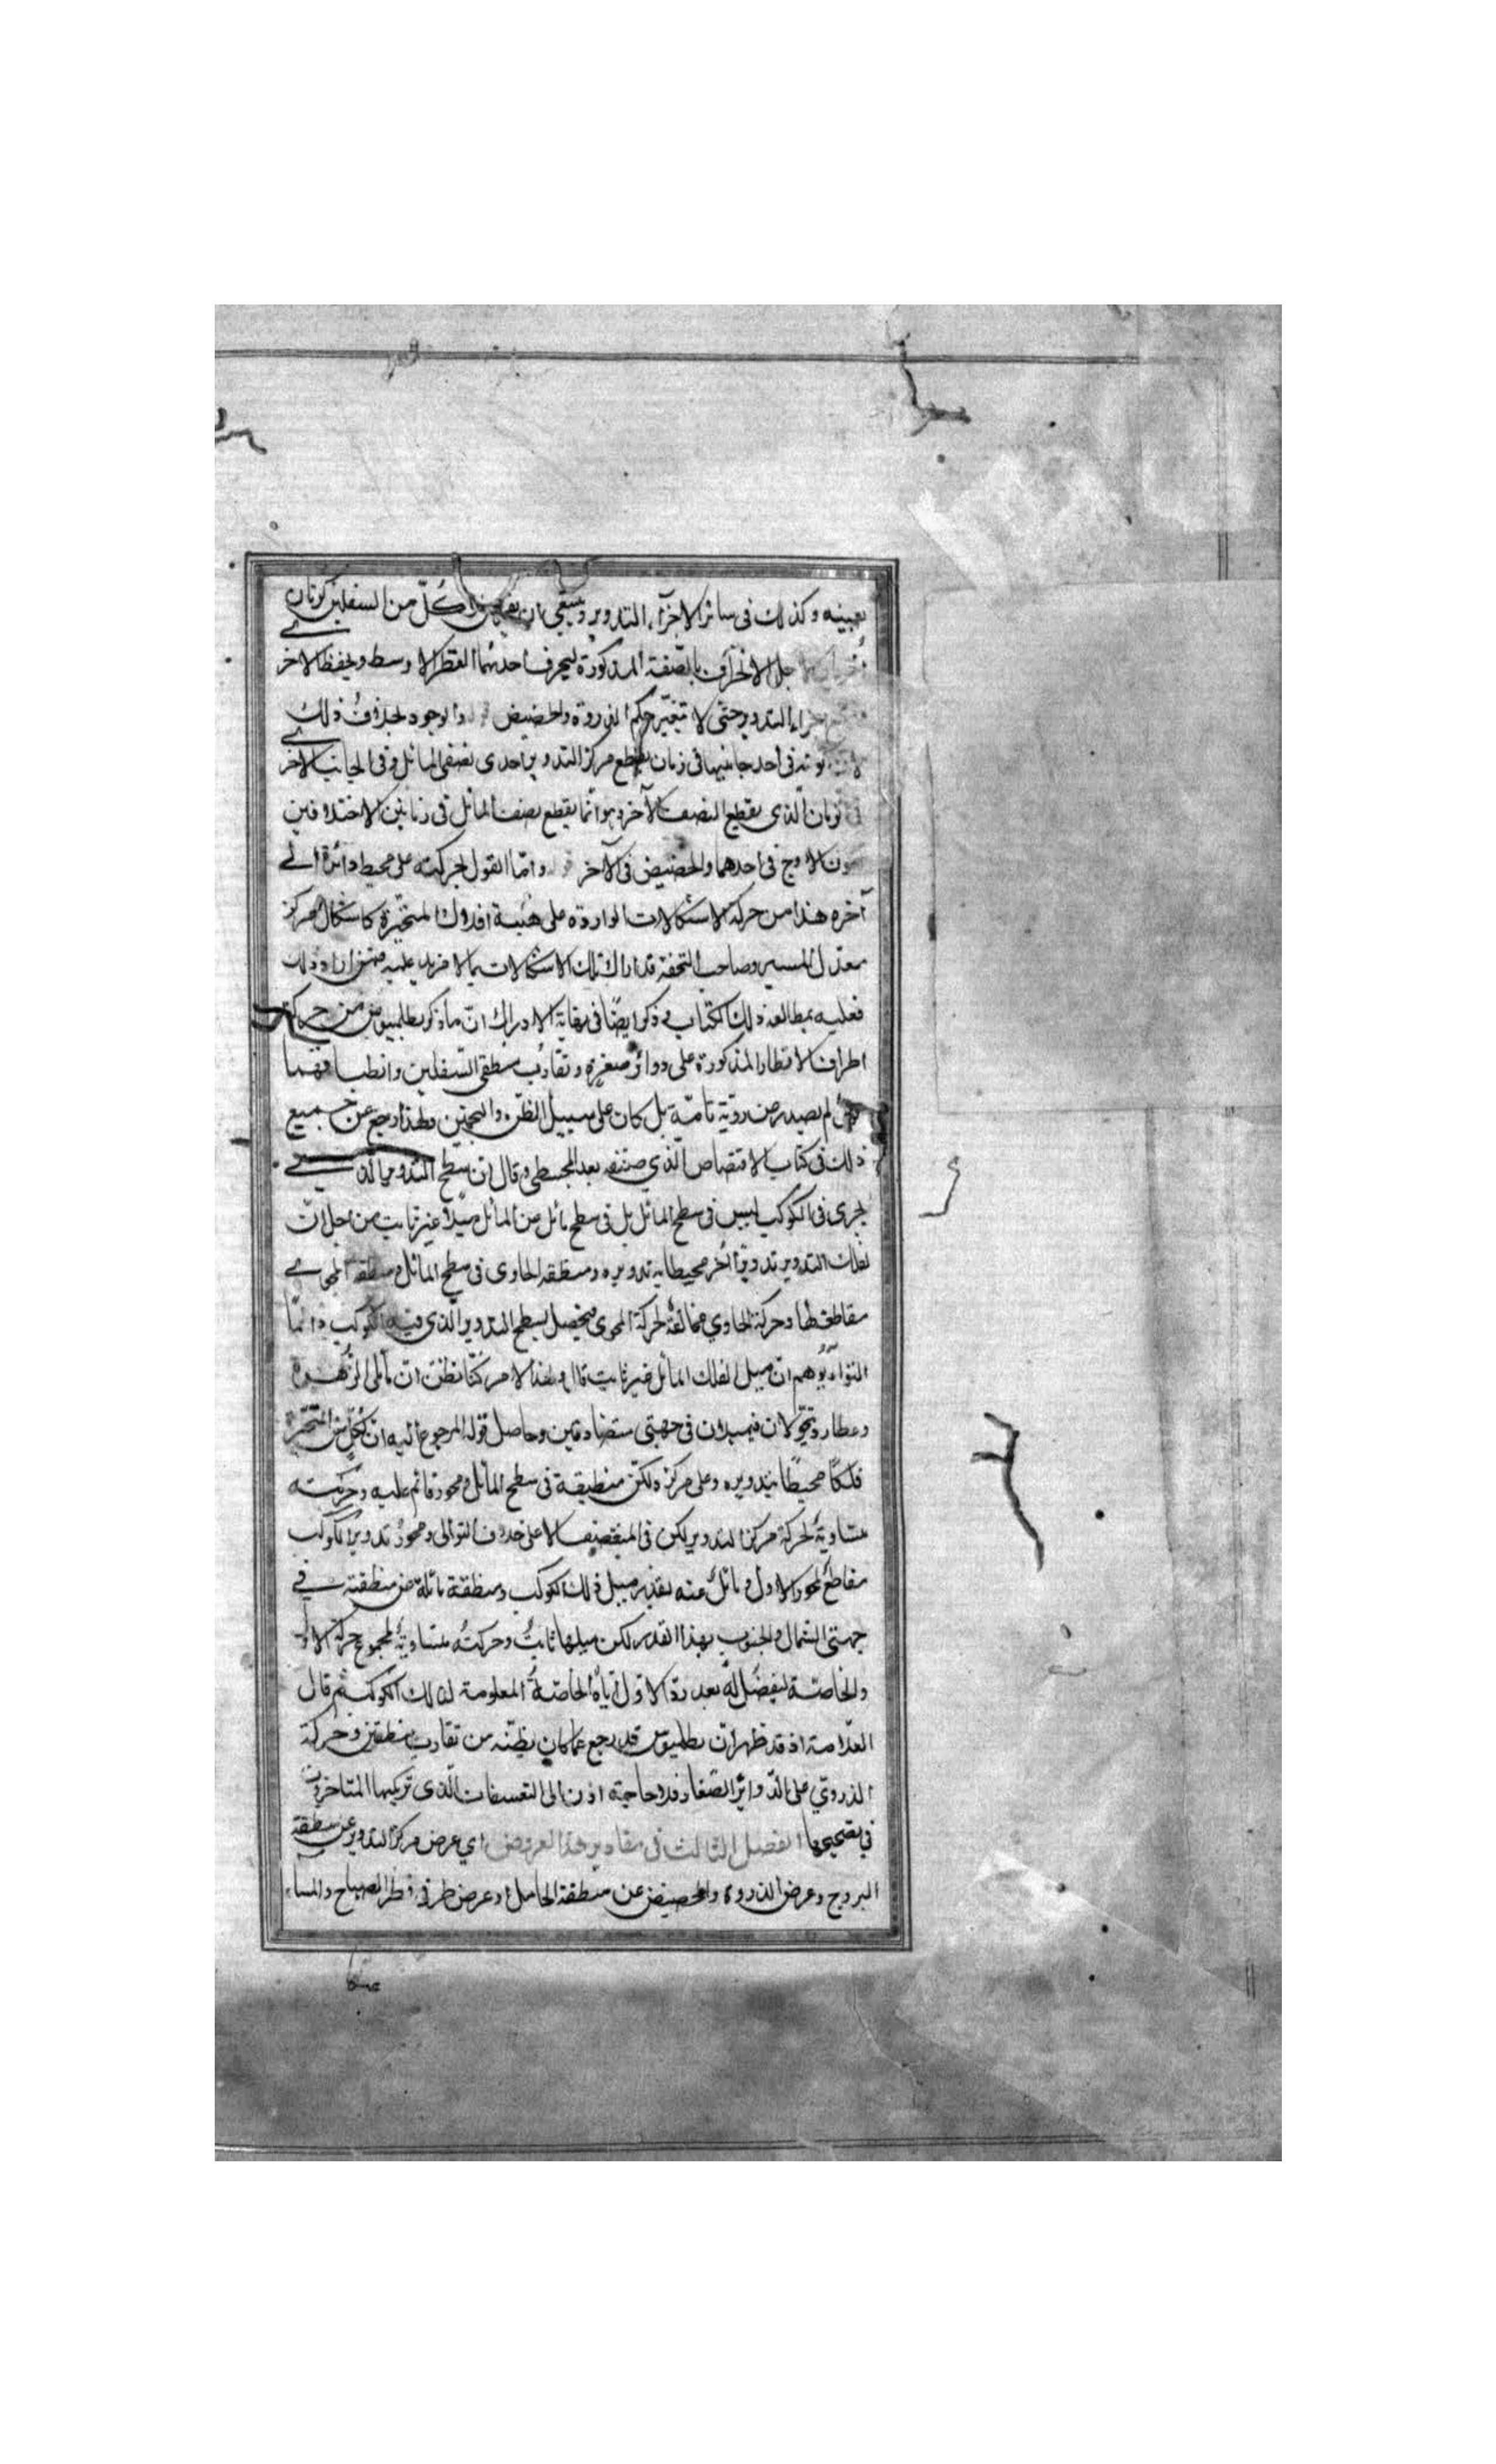 بعينه وكذلك فى سائر الاجزآء التدوير وينبغي ان كلّ من السفلين كرتان
اخريان لاجل الانحراف بالصّفة المذكورة ليحرف احدهما القطر الاوسط ويحفظ الاخر
اجزاء التدوير حتى لا يتغيّر حكم الذروة والحضيض والوجود بخلاف ذلك
فى احد جانبيها فى زمان يقطع مركز التدوير احدى نصفى المائل وفى الجانب الاخر
الّذى يقطع النصف الآخر وهو انّما يقطع نصف المائل فى زمانين لاختلافين
كون الاوج فى احدهما والحضيض فى الآخر وامّا القول بحركته على محيط دائرة الى
آخره هذا من الاشكالات الواردة على هيئة افلاك المتحيّرة كاشكال مركز
معدّل المسير وصاحب التحفة قد تلك الاشكالات بما لا مزيد عليه فمن اراد ذلك
فعليه بمطالعة ذلك الكتاب وذكر ايضًا فى نهاية الادراك انّ ما ذكر بطلميوس من حركة
اطراف الاقطار المذكورة على دوائر صغيرة وتقارب منطقى السّفلين وانطباقهما
لم يصدر من رويّة تامّة بل كان على سبيل الظنّ والتخمين ولهذا رجع عن جميع
ذلك فى كتاب الاقتصاص الّذي صنّفه بعد المجسطى وقال انّ سطح التدوير الّذى
يجرى فيه الكوكب ليس فى سطح المائل بل فى سطح مائل من المائل ميلاً غير ثابت من اجل انّ
لفلك التدوير تدويرًا آخر محيطًا به تدويره ومنطقة الحاوى فى سطح المائل ومنطقة المحوى
مقاطعة لها وحركة الحاوي مخالفة لحركة المحوى فيحصل لسطح التدوير الّذى فيه الكوكب دائمًا
التواء يوهم انّ ميل الفلك المائل غير ثابت قال ولهذا الامر كنّا نظنّ انّ مائلى الزّهرة
وعطارد يتحوّلان فيميلان فى جهتى متضادّتين وحاصل قوله المرجوع اليه انّ لكلّ من المتحيّرة
فلكًا محيطًا بتدويره وعلى مركزه ولكن منطقته فى سطح المائل ومحوره قائم عليه وحركته
متساوية لحركة مركز التدوير لكن فى النصف الاعلى خلاف التوالى ومحور تدوير الكوكب
مقاطع لمحور الاول ومائل عنه بقدر ميل فلك الكوكب ومنطقته مائلة عن منطقته فى
جهتى الشمال والجنوب بهذا القدر لكن ميلها ثابت وحركته متساوية لمجموع حركة الاوّل
والخاصّة ليفضل له بعد ردّ الاوّل ايّاه الخاصّة المعلومة لذلك الكوكب ثم قال
العلّامة اذ قد ظهر انّ بطلميوس قد رجع عمّا كان يظنّه من تقارب منطقتين وحركة
الذروتي على الدّوائر الصّغار فلا حاجة اذن الى التعسفات الّذى تركبها المتاخرون
فى تصحيحها الفصل الثالث فى مقادير هذا العروض اي عرض مركز التدوير عن منطقة
البروج وعرض الذروة والحضيض عن منطقة الحامل وعرض طرفى قطر الصباح والمساء